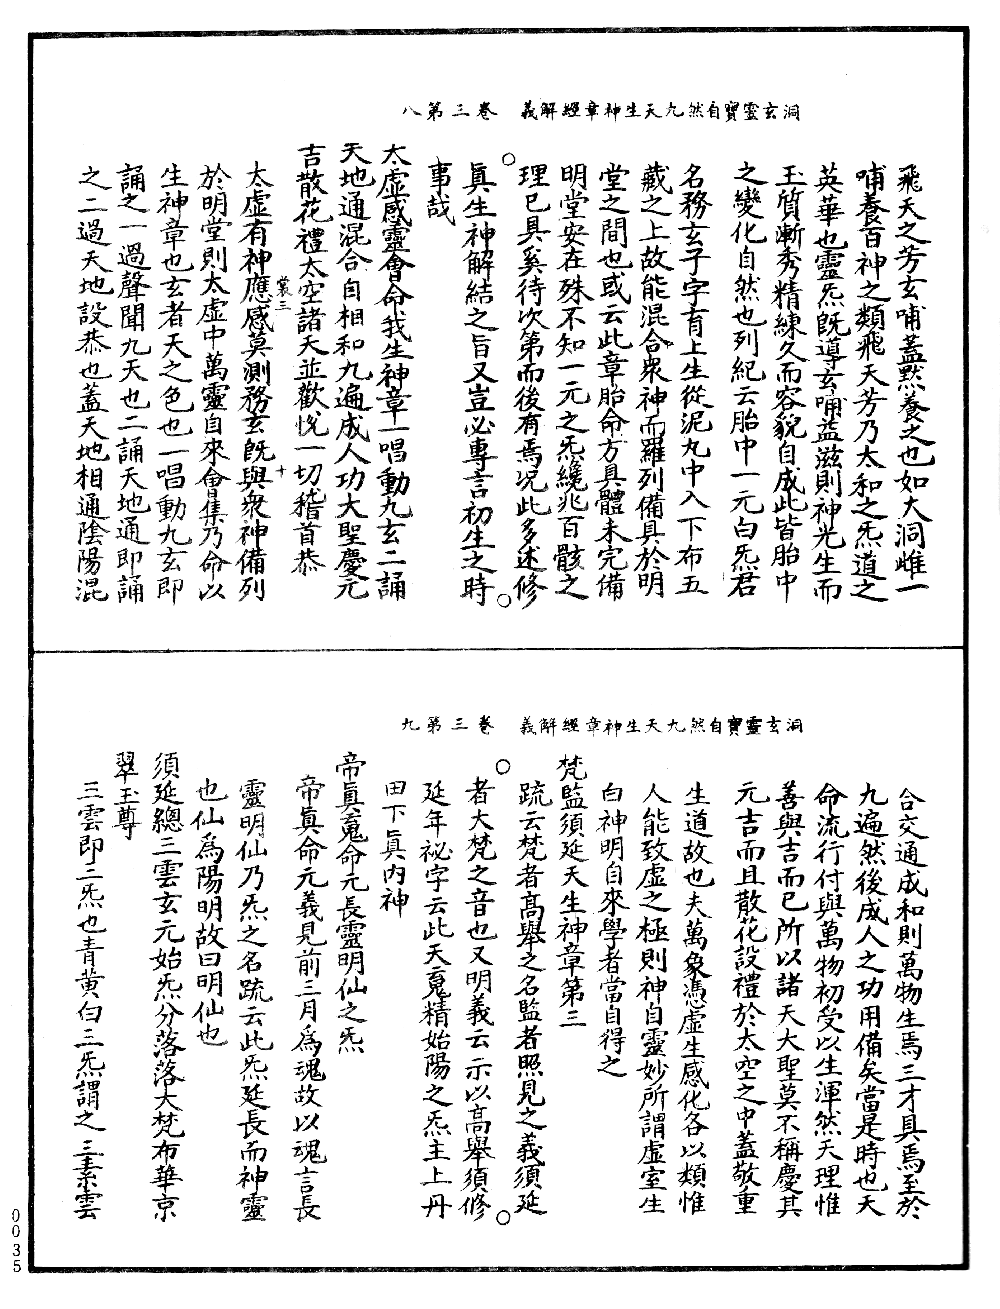 洞玄靈寶自然九天生神章經解義　卷三第八
飛天之芳玄哺蓋黙養之也如大洞雌一
哺養百神之類飛天芳乃太和之炁道之
英華也靈炁旣導玄哺益滋則神光生而
玉質漸秀精練久而容貌自成此皆胎中
之變化自然也列紀云胎中一元白炁君
名務玄子字育上生從泥丸中入下布五
藏之上故能混合衆神而羅列備具於明
堂之間也或云此章胎命方具體未完備
明堂安在殊不知一元之炁纔兆百骸之
理已具奚待次第而後有焉况此多述修
眞生神解結之旨又豈必專言初生之時
事哉
太虛感靈會命我生神章一唱動九玄二誦
天地通混合自相和九遍成人功大聖慶元
吉散花禮太空諸天並歡悅一切稽首恭
裳三
十
太虛有神應感莫測務玄旣與衆神備列
於明堂則太虛中萬靈自來會集乃命以
生神章也玄者天之色也一唱動九玄即
誦之一過聲聞九天也二誦天地通即誦
之二過天地設恭也蓋天地相通陰陽混
洞玄靈寶自然九天生神章經解義　卷三第九
合交通成和則萬物生焉三才具焉至於
九遍然後成人之功用備矣當是時也天
命流行付與萬物初受以生渾然天理惟
善與吉而已所以諸天大聖莫不稱慶其
元吉而且散花設禮於太空之中蓋敬重
生道故也夫萬象憑虛生感化各以類惟
人能致虛之極則神自靈妙所謂虛室生
白神明自來學者當自得之
梵監須延天生神章第三
疏云梵者高舉之名監者照見之義須延
者大梵之音也又明義云示以高舉須修
延年祕字云此天䰟精始陽之炁主上丹
田下眞內神
帝眞䰟命元長靈明仙之炁
帝眞命元義見前三月爲魂故以魂言長
靈明仙乃炁之名疏云此炁延長而神靈
也仙爲陽明故曰明仙也
須延總三雲玄元始炁分落落大梵布華京
翠玉尊
三雲即三炁也青黃白三炁謂之三素雲
0035